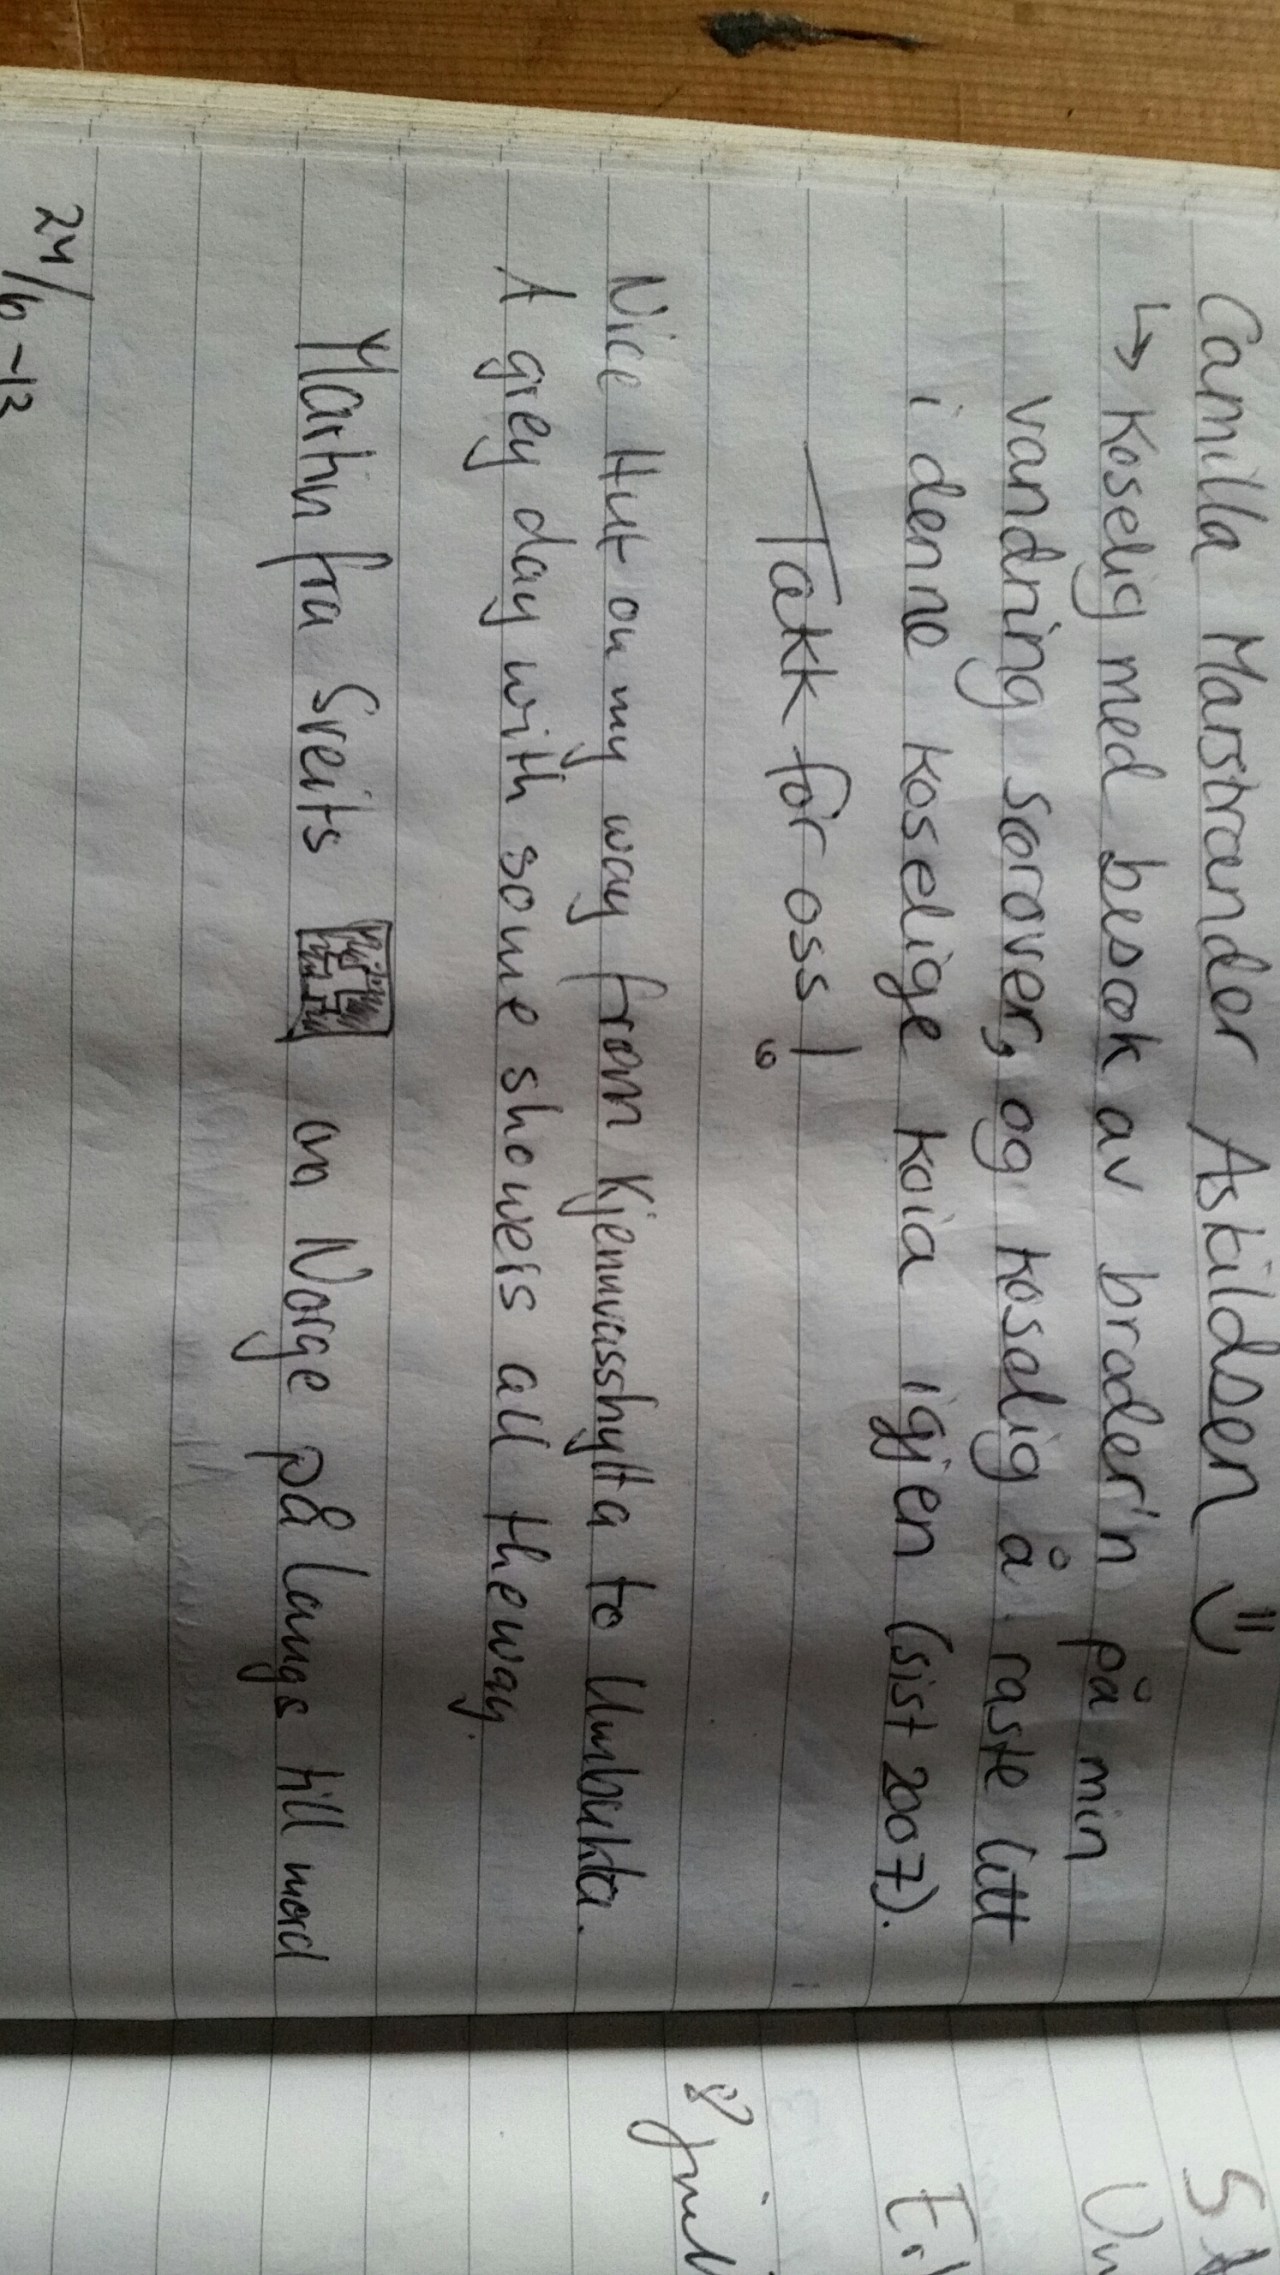 Camilla Marstrander Askildsen
↳ Koselig med besøk av broder'n på min
vandring sørover, og koselig å raste litt
i denne koselige koia igjen (sist 2007).
Takk for oss!
Nice Hut on my way from Kjennvasshytta to Umbukta.
A grey day with some showers all the way.
Martin fra Sveits on Norge på langs till nord
24/6-13